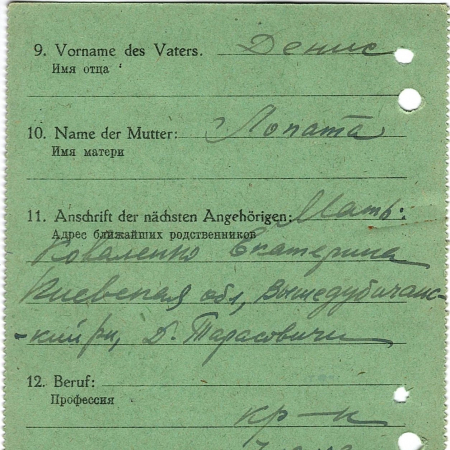 9. Vorname des Vaters. Денис
Имя отца
10. Name der Mutter: Лопата
Имя матери
11. Anschrift der nächsten Angehörigen: Мать:
Адрес ближайших родственников
Коваленко Екатерина
Киевская обл, Вышедубичанс-
-кий рн, д. Тарасовичи
12. Beruf:
Профессия
кр-н